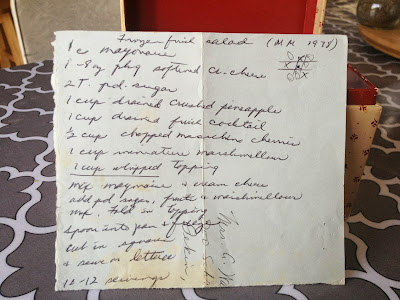 Frozen fruit salad (MM 1978)
1 c mayonaise
1 - 8oz pkg softened cr. cheese
2 T. pd. sugar
1 cup drained crushed pineapple
1 cup drained fruit cocktail
½ cup chopped maraschino cherries
1 cup miniature marshmellow
1 cup whipped topping
mix mayonaise & cream cheese
add pd sugar, fruits & marshmellow
mix. Fold in topping
spoon into pan & freeze
cut in squares
& serve on lettuce
10-12 servings
Mrs
Pekin